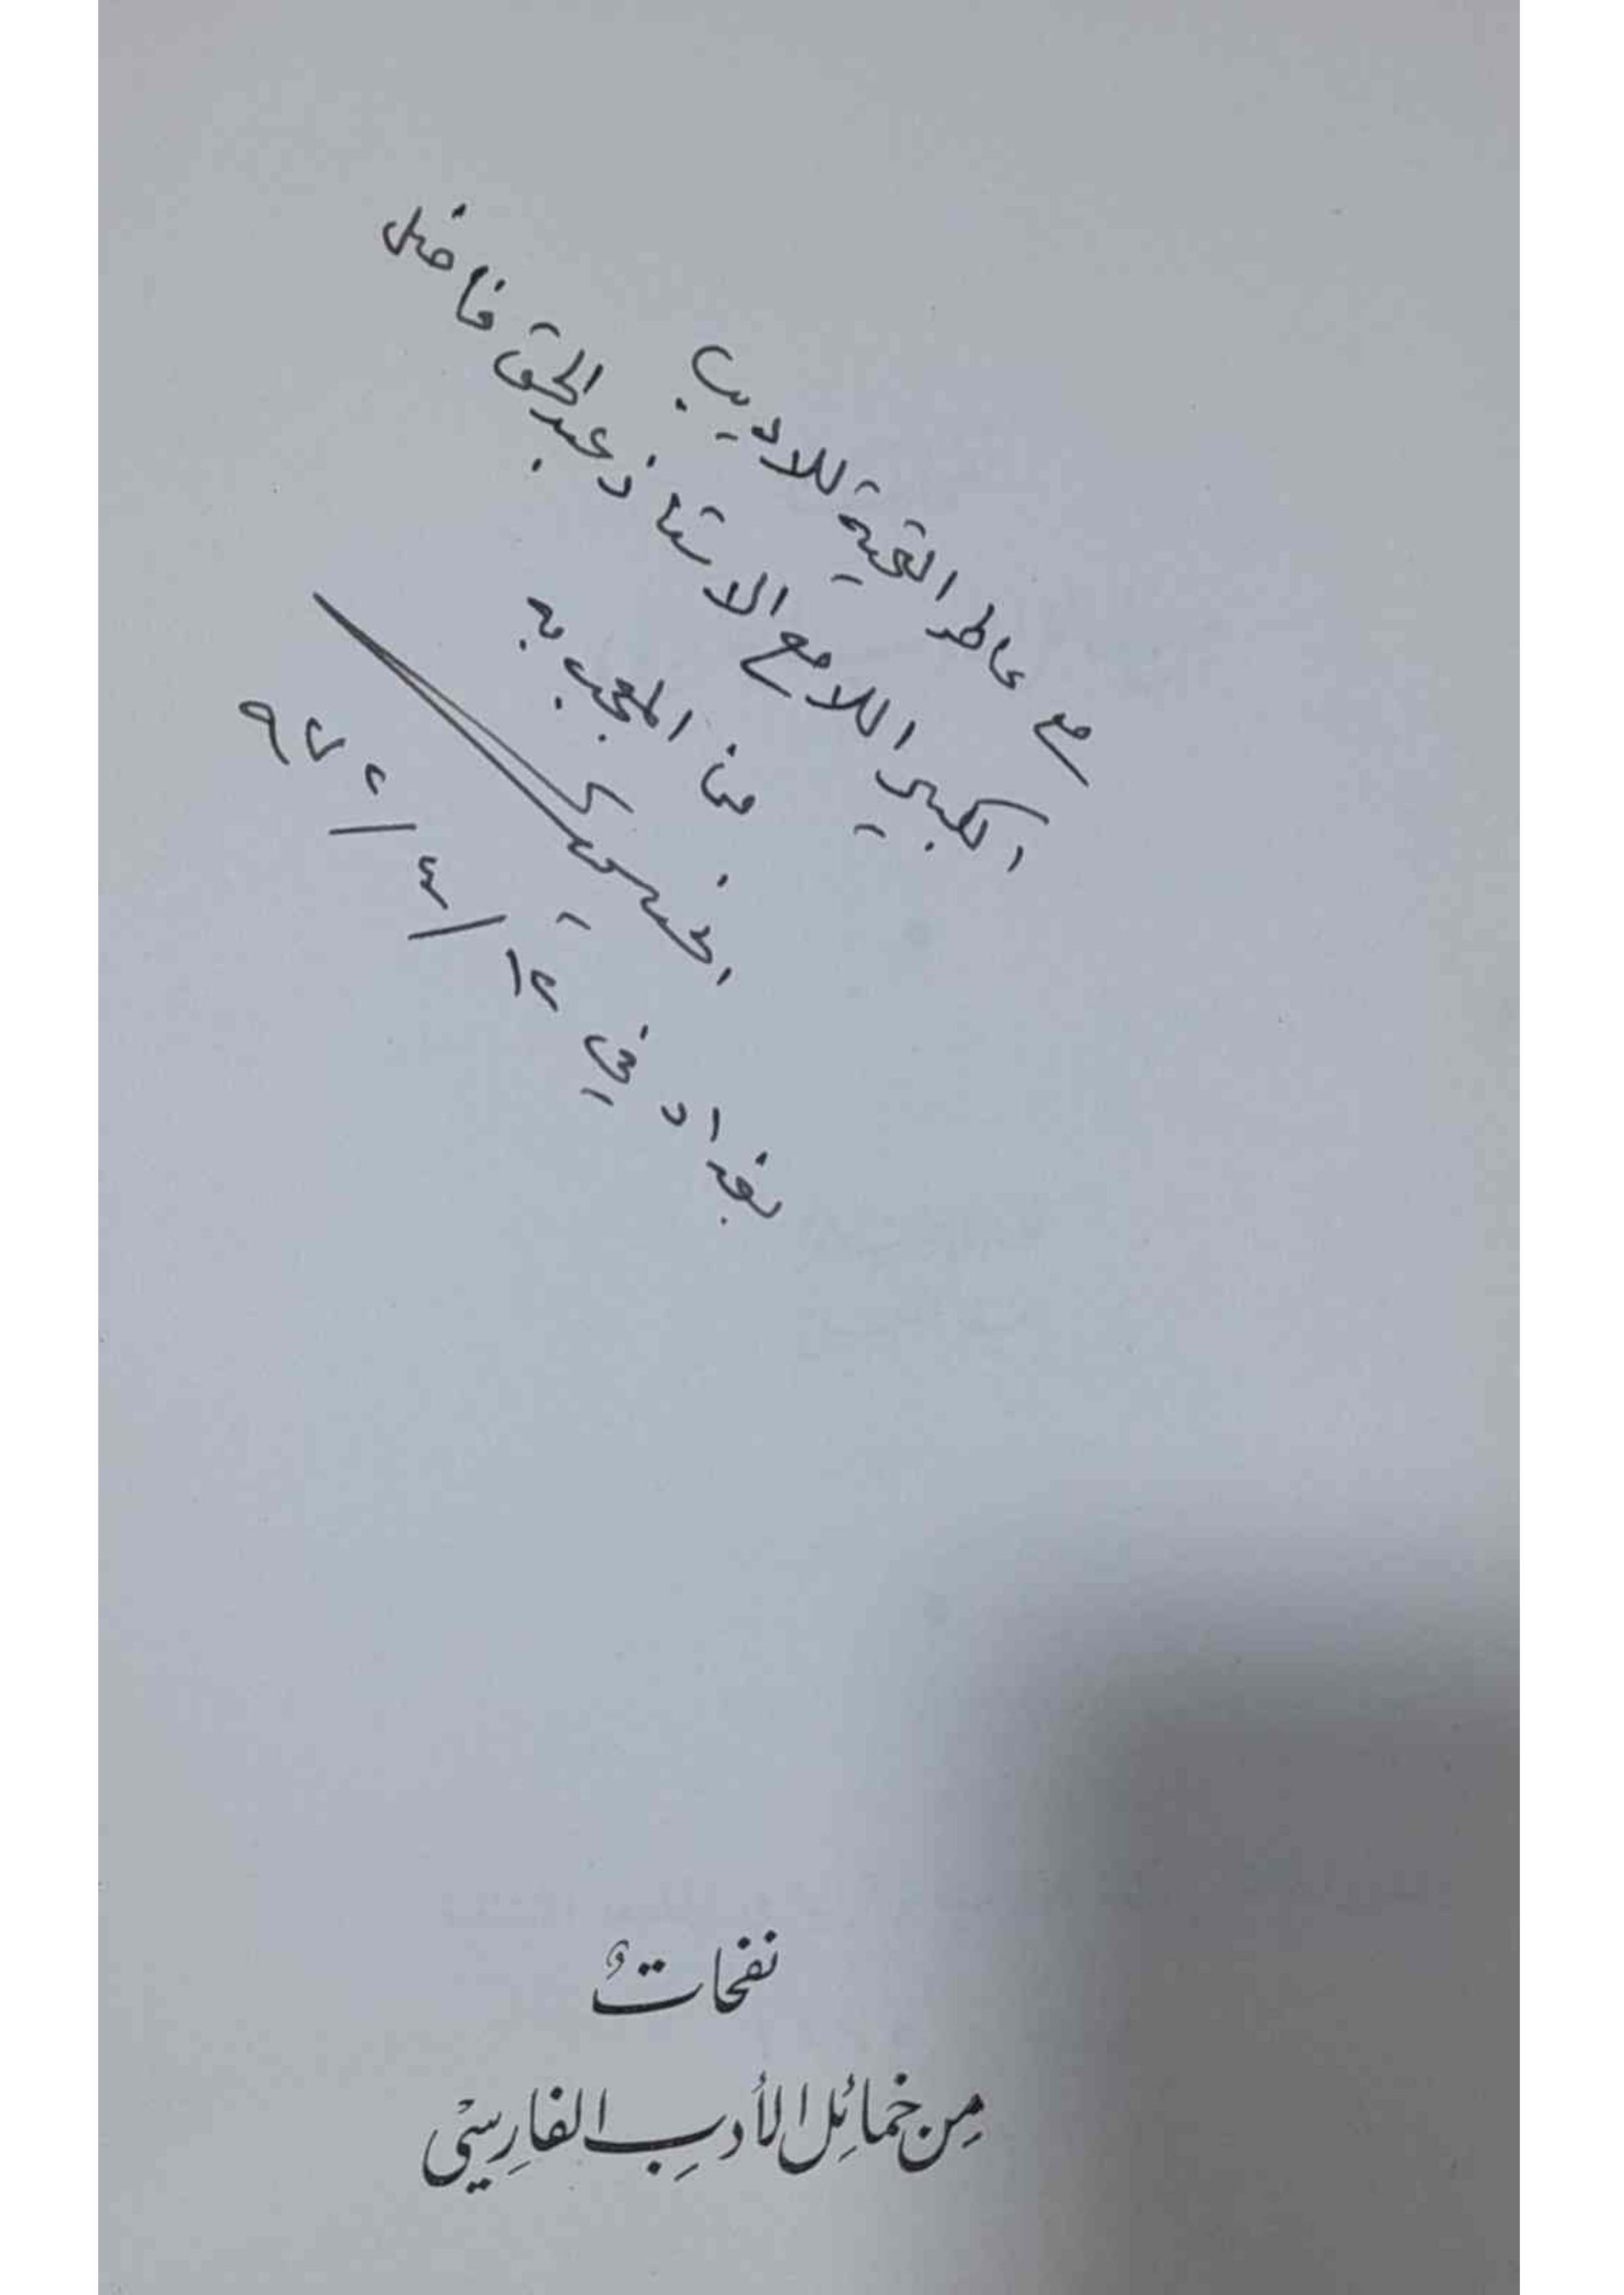 مع عاطر التحية للاديب
الكبير اللامع الاستاذ عبدالحق فاضل
من المعجب به
بغداد في
نفحاتٌ
مِن خمائِل الأدبِ الفارِسيّ